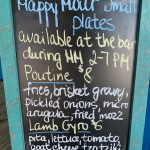 Happy Hour Small
plates
available at the bar
during HH 2-7 PM
Poutine $8
fries, brisket, gravy,
pickled onions, micro
arugula, fried mozz
Lamb Gyro $6
pita, lettuce, tomato,
goat cheese tzatziki